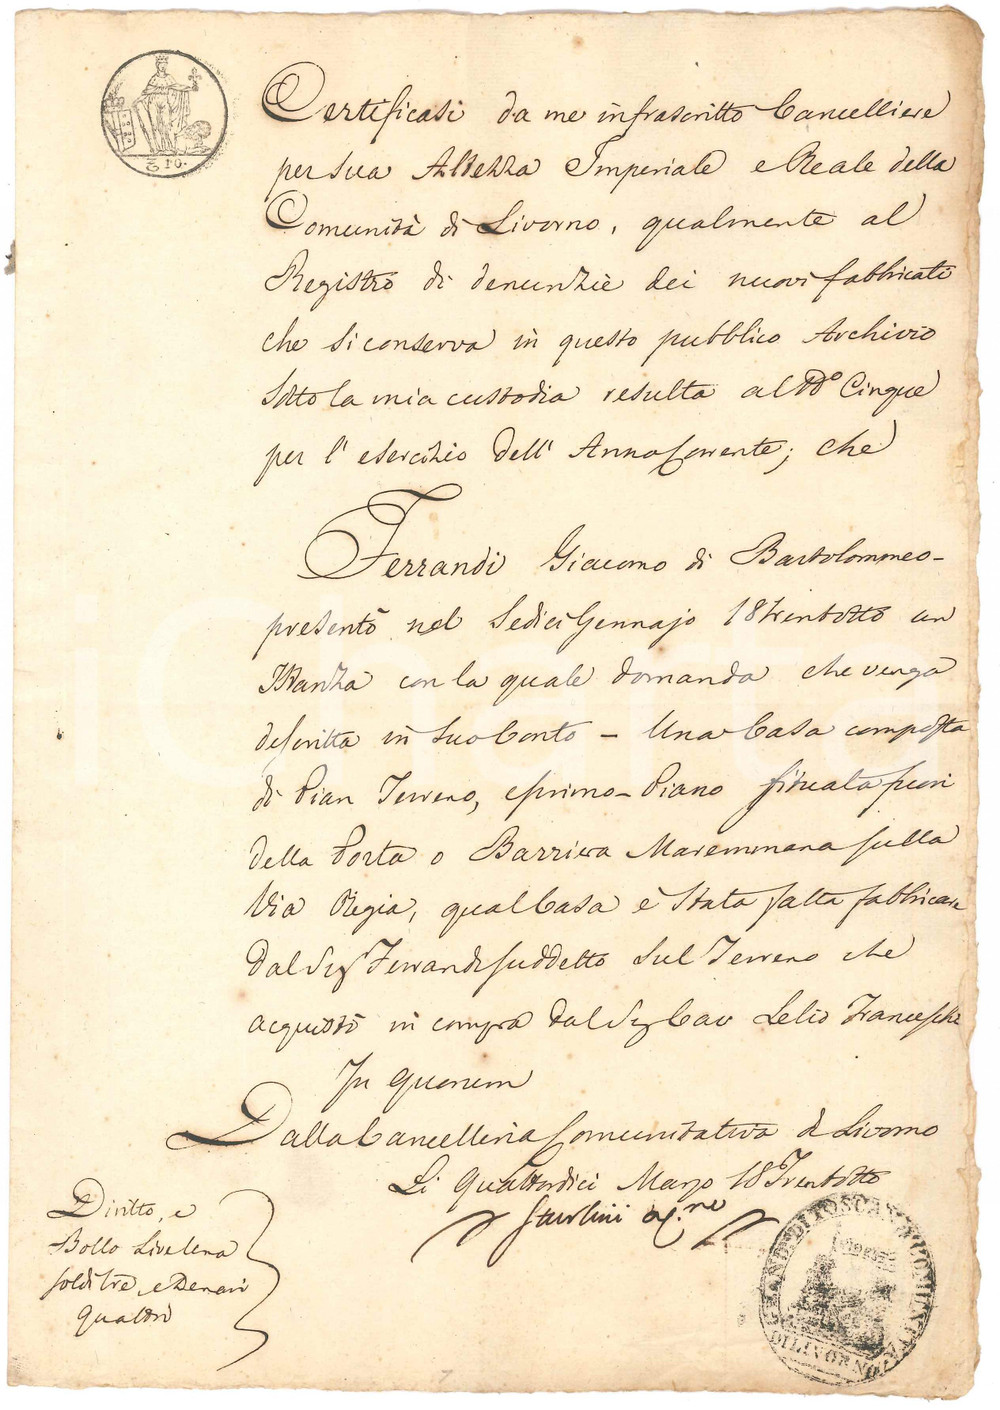 Certificasi da me infrascritto Cancelliere
per Sua Altezza Imperiale e Reale della
Comunità di Livorno, qualmente al
Registro di denunzie dei nuovi fabbricati
che si conserva in questo pubblico Archivio
Sotto la mia custodia resulta al Nº Cinque
per l' esercizio dell' Anno Corrente; che
Ferrandi Giacomo di Bartolommeo -
presentò nel Sedici Gennajo 18trentotto un
Istanza con la quale domanda che venga
descritta in Suo Conto - Una Casa composta
di Pian Terreno, e primo - Piano situata fuori
della Porta o Barriera Maremmana sulla
Via Regia, qual Casa è Stata fatta fabbricare
Dal Sig Ferrandi suddetto Sul Terreno che
acquistò in compra dal Sig Cav Lelio Franceschi
In quorum
Dalla Cancelleria Comunitativa di Livorno
Li Quattordici Marzo 18Trentotto
Diritto, e
Bollo Lire Una
soldi tre, e Denari
quattro
S. 10.
GRAND. DI TOSCANA COMUNITA
DI LIVORNO